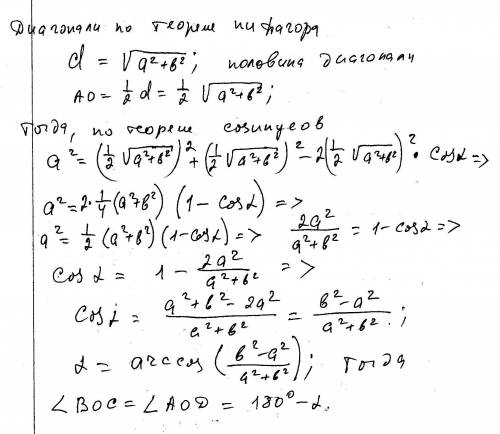 Диагонали по теореме пифагора
d = √(a²+b²); половина диагонали
AO = 1/2 d = 1/2 √(a²+b²);
тогда, по теореме косинусов
a² = (1/2 √(a²+b²))² + (1/2 √(a²+b²))² - 2(1/2 √(a²+b²))² · cos α =>
a² = 2·1/4 (a²+b²) (1 - cos α) =>
a² = 1/2 (a²+b²) (1-cos α) => 2a²/(a²+b²) = 1 - cos α =>
cos α = 1 - 2a²/(a²+b²) =>
cos α = (a²+b²-2a²)/(a²+b²) = (b²-a²)/(a²+b²);
α = arccos ((b²-a²)/(a²+b²)); тогда
∠BOC = ∠AOD = 180° - α.